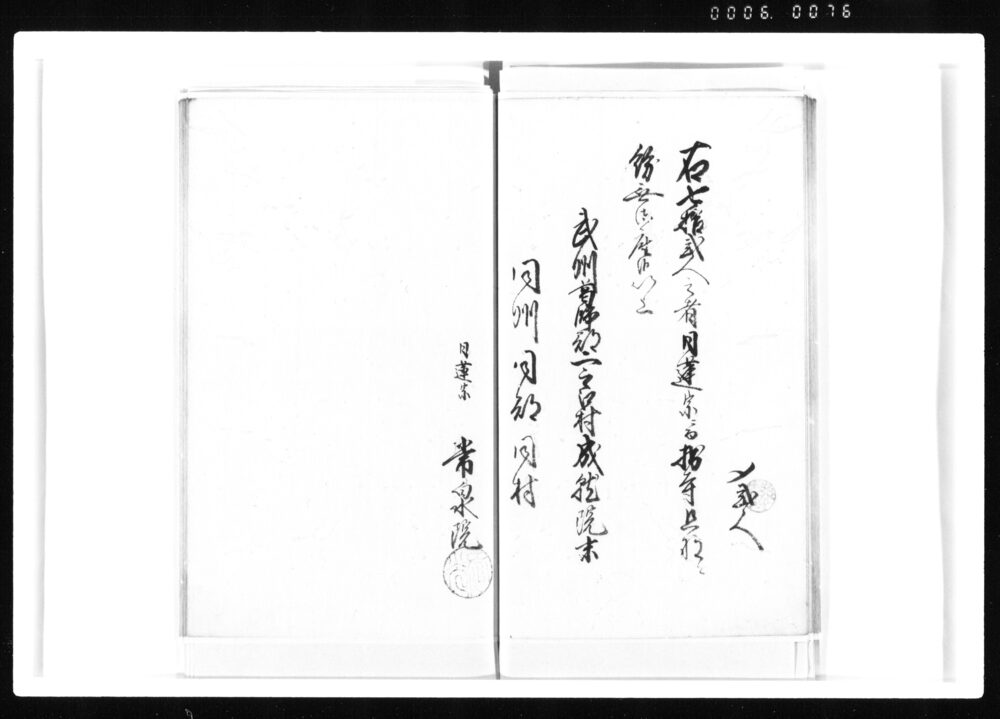 0006. 0076
〆弐人
右七拾弐人之者日蓮宗ニ而拙寺旦那ニ
紛無御座候以上
武州首飾郡二之江村成就院末
同州同郡同村
日蓮宗 常泉院